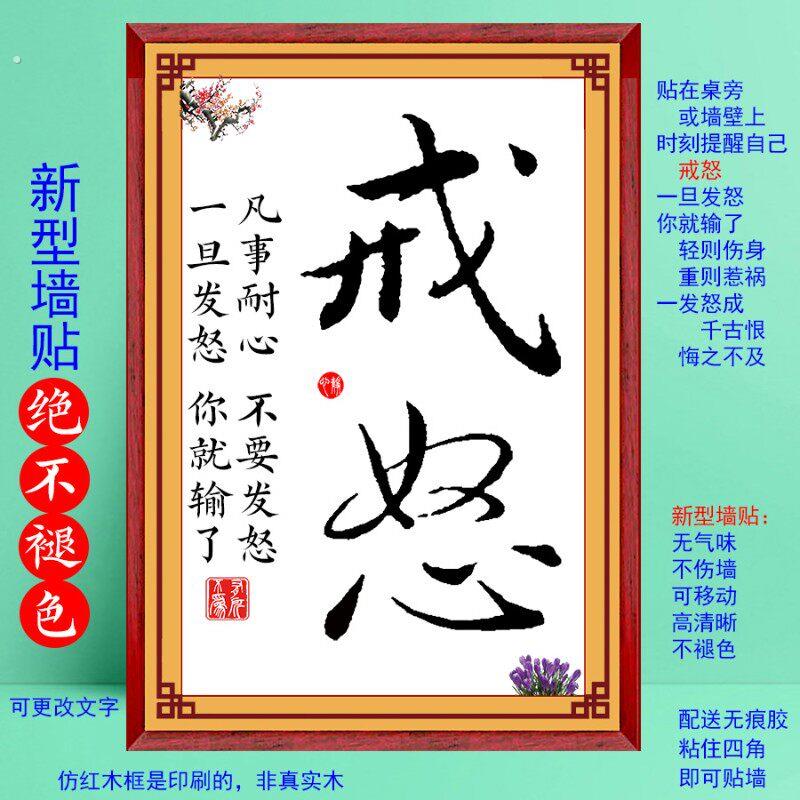 新型墙贴
绝不褪色
可更改文字
戒怒
凡事耐心 不要发怒
一旦发怒 你就输了
贴在桌旁
或墙壁上
时刻提醒自己
戒怒
一旦发怒
你就输了
轻则伤身
重则惹祸
一发怒成
千古恨
悔之不及
新型墙贴：
无气味
不伤墙
可移动
高清晰
不褪色
配送无痕胶
粘住四角
即可贴墙
仿红木框是印刷的，非真实木